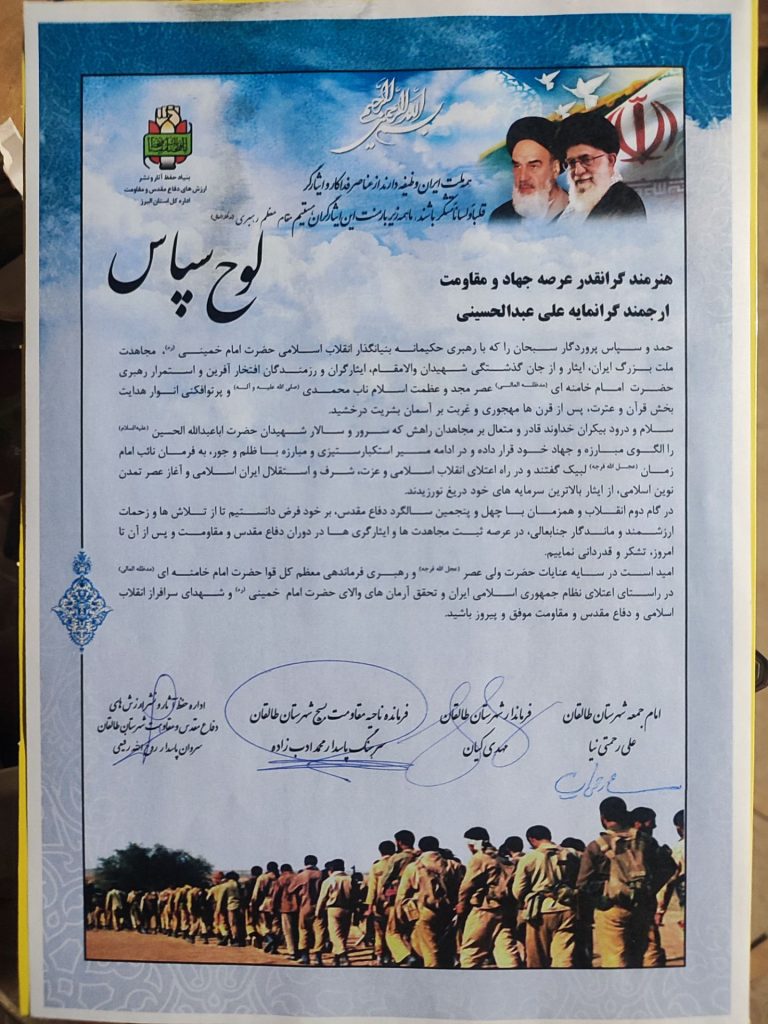 بسم الله الرحمن الرحیم
بنیاد حفظ آثار و نشر
ارزش های دفاع مقدس و مقاومت
اداره کل استان البرز
همه ملت ایران وظیفه دارند از عناصر فداکار و ایثارگر
قلباً و لساناً متشکر باشند، ما همه زیر بار منت این ایثارگران هستیم مقام معظم رهبری (مدظله العالی)
لوح سپاس
هنرمند گرانقدر عرصه جهاد و مقاومت
ارجمند گرانمایه علی عبدالحسینی
حمد و سپاس پروردگار سبحان را که با رهبری حکیمانه بنیانگذار انقلاب اسلامی حضرت امام خمینی (ره)، مجاهدت
ملت بزرگ ایران، ایثار و از جان گذشتگی شهیدان والامقام، ایثارگران و رزمندگان افتخار آفرین و استمرار رهبری
حضرت امام خامنه ای (مدظله العالی) عصر مجد و عظمت اسلام ناب محمدی (صلی الله علیه و آله) و پرتوافکنی انوار هدایت
بخش قرآن و عترت، پس از قرن ها مهجوری و غربت بر آسمان بشریت درخشید.
سلام و درود بیکران خداوند قادر و متعال بر مجاهدان راهش که سرور و سالار شهیدان حضرت اباعبدالله الحسین (علیه السلام)
را الگوی مبارزه و جهاد خود قرار داده و در ادامه مسیر استکبارستیزی و مبارزه با ظلم و جور، به فرمان نائب امام
زمان (عجل الله فرجه) لبیک گفتند و در راه اعتلای انقلاب اسلامی و عزت، شرف و استقلال ایران اسلامی و آغاز عصر تمدن
نوین اسلامی، از ایثار بالاترین سرمایه های خود دریغ نورزیدند.
در گام دوم انقلاب و همزمان با چهل و پنجمین سالگرد دفاع مقدس، بر خود فرض دانستیم تا از تلاش ها و زحمات
ارزشمند و ماندگار جنابعالی، در عرصه ثبت مجاهدت ها و ایثارگری ها در دوران دفاع مقدس و مقاومت و پس از آن تا
امروز، تشکر و قدردانی نماییم.
امید است در سایه عنایات حضرت ولی عصر (عجل الله فرجه) و رهبری فرماندهی معظم کل قوا حضرت امام خامنه ای (مدظله العالی)
در راستای اعتلای نظام جمهوری اسلامی ایران و تحقق آرمان های والای حضرت امام خمینی (ره) و شهدای سرافراز انقلاب
اسلامی و دفاع مقدس و مقاومت موفق و پیروز باشید.
امام جمعه شهرستان طالقان
علی رحمتی نیا
فرماندار شهرستان طالقان
مهدی کیان
فرمانده ناحیه مقاومت بسیج شهرستان طالقان
سرهنگ پاسدار محمد ادب زاده
اداره حفظ آثار و نشر ارزش های
دفاع مقدس و مقاومت شهرستان طالقان
سروان پاسدار روح الله رفیعی